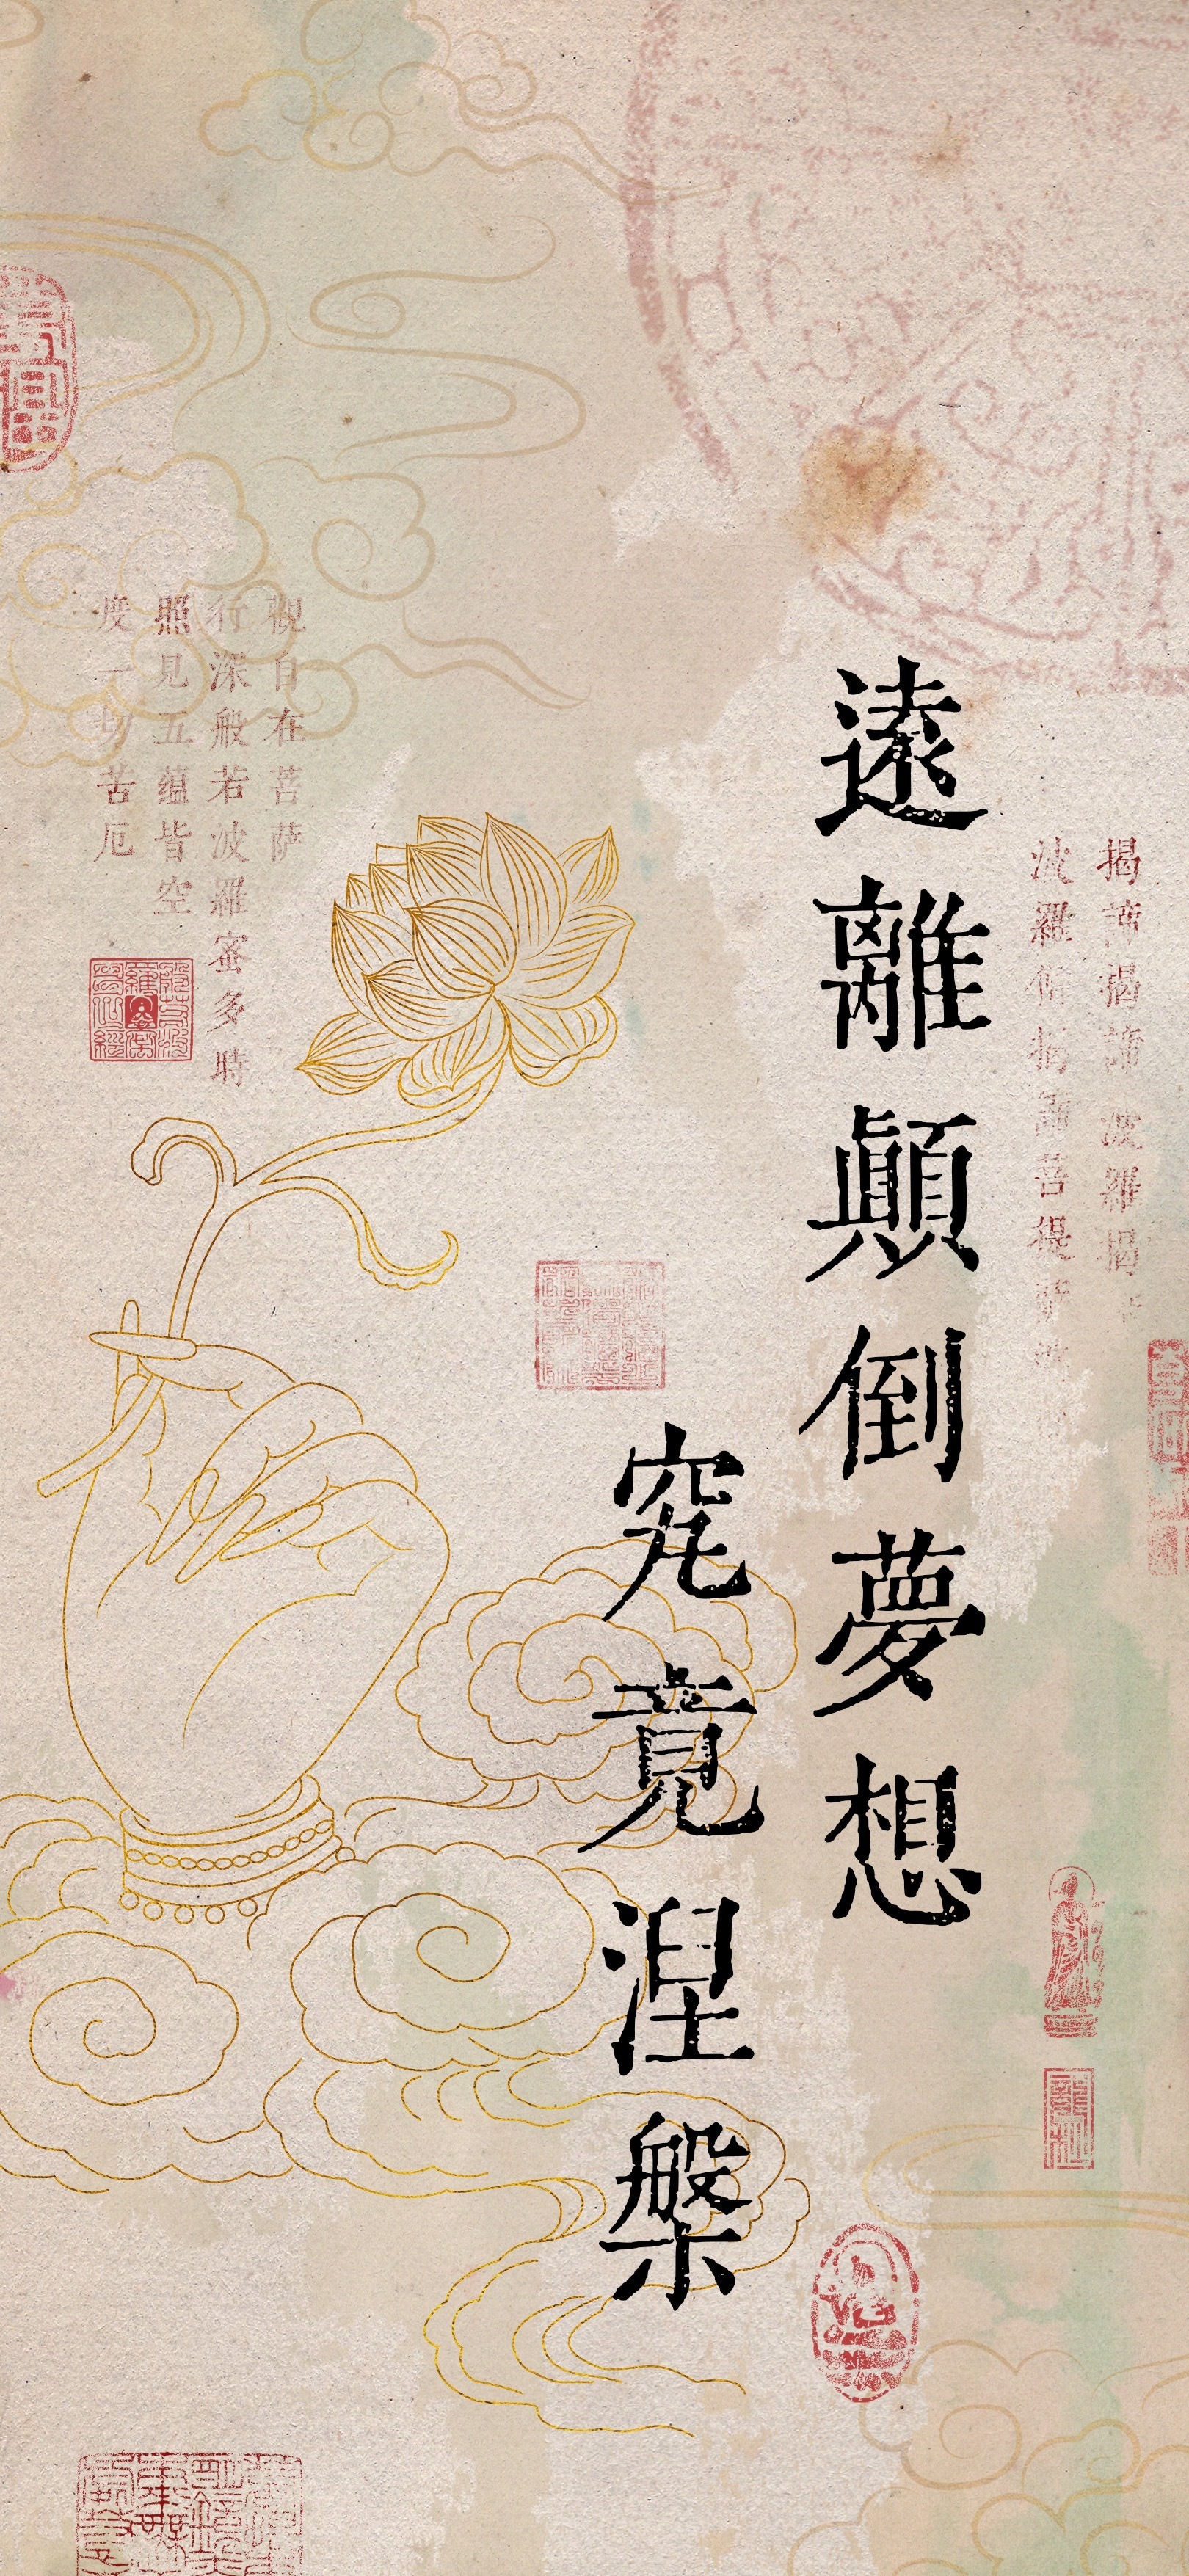 揭諦揭諦 波羅揭
波羅僧揭諦菩提薩
遠離顛倒夢想
究竟涅槃
觀自在菩萨
行深般若波羅蜜多時
照見五蕴皆空
度一切苦厄